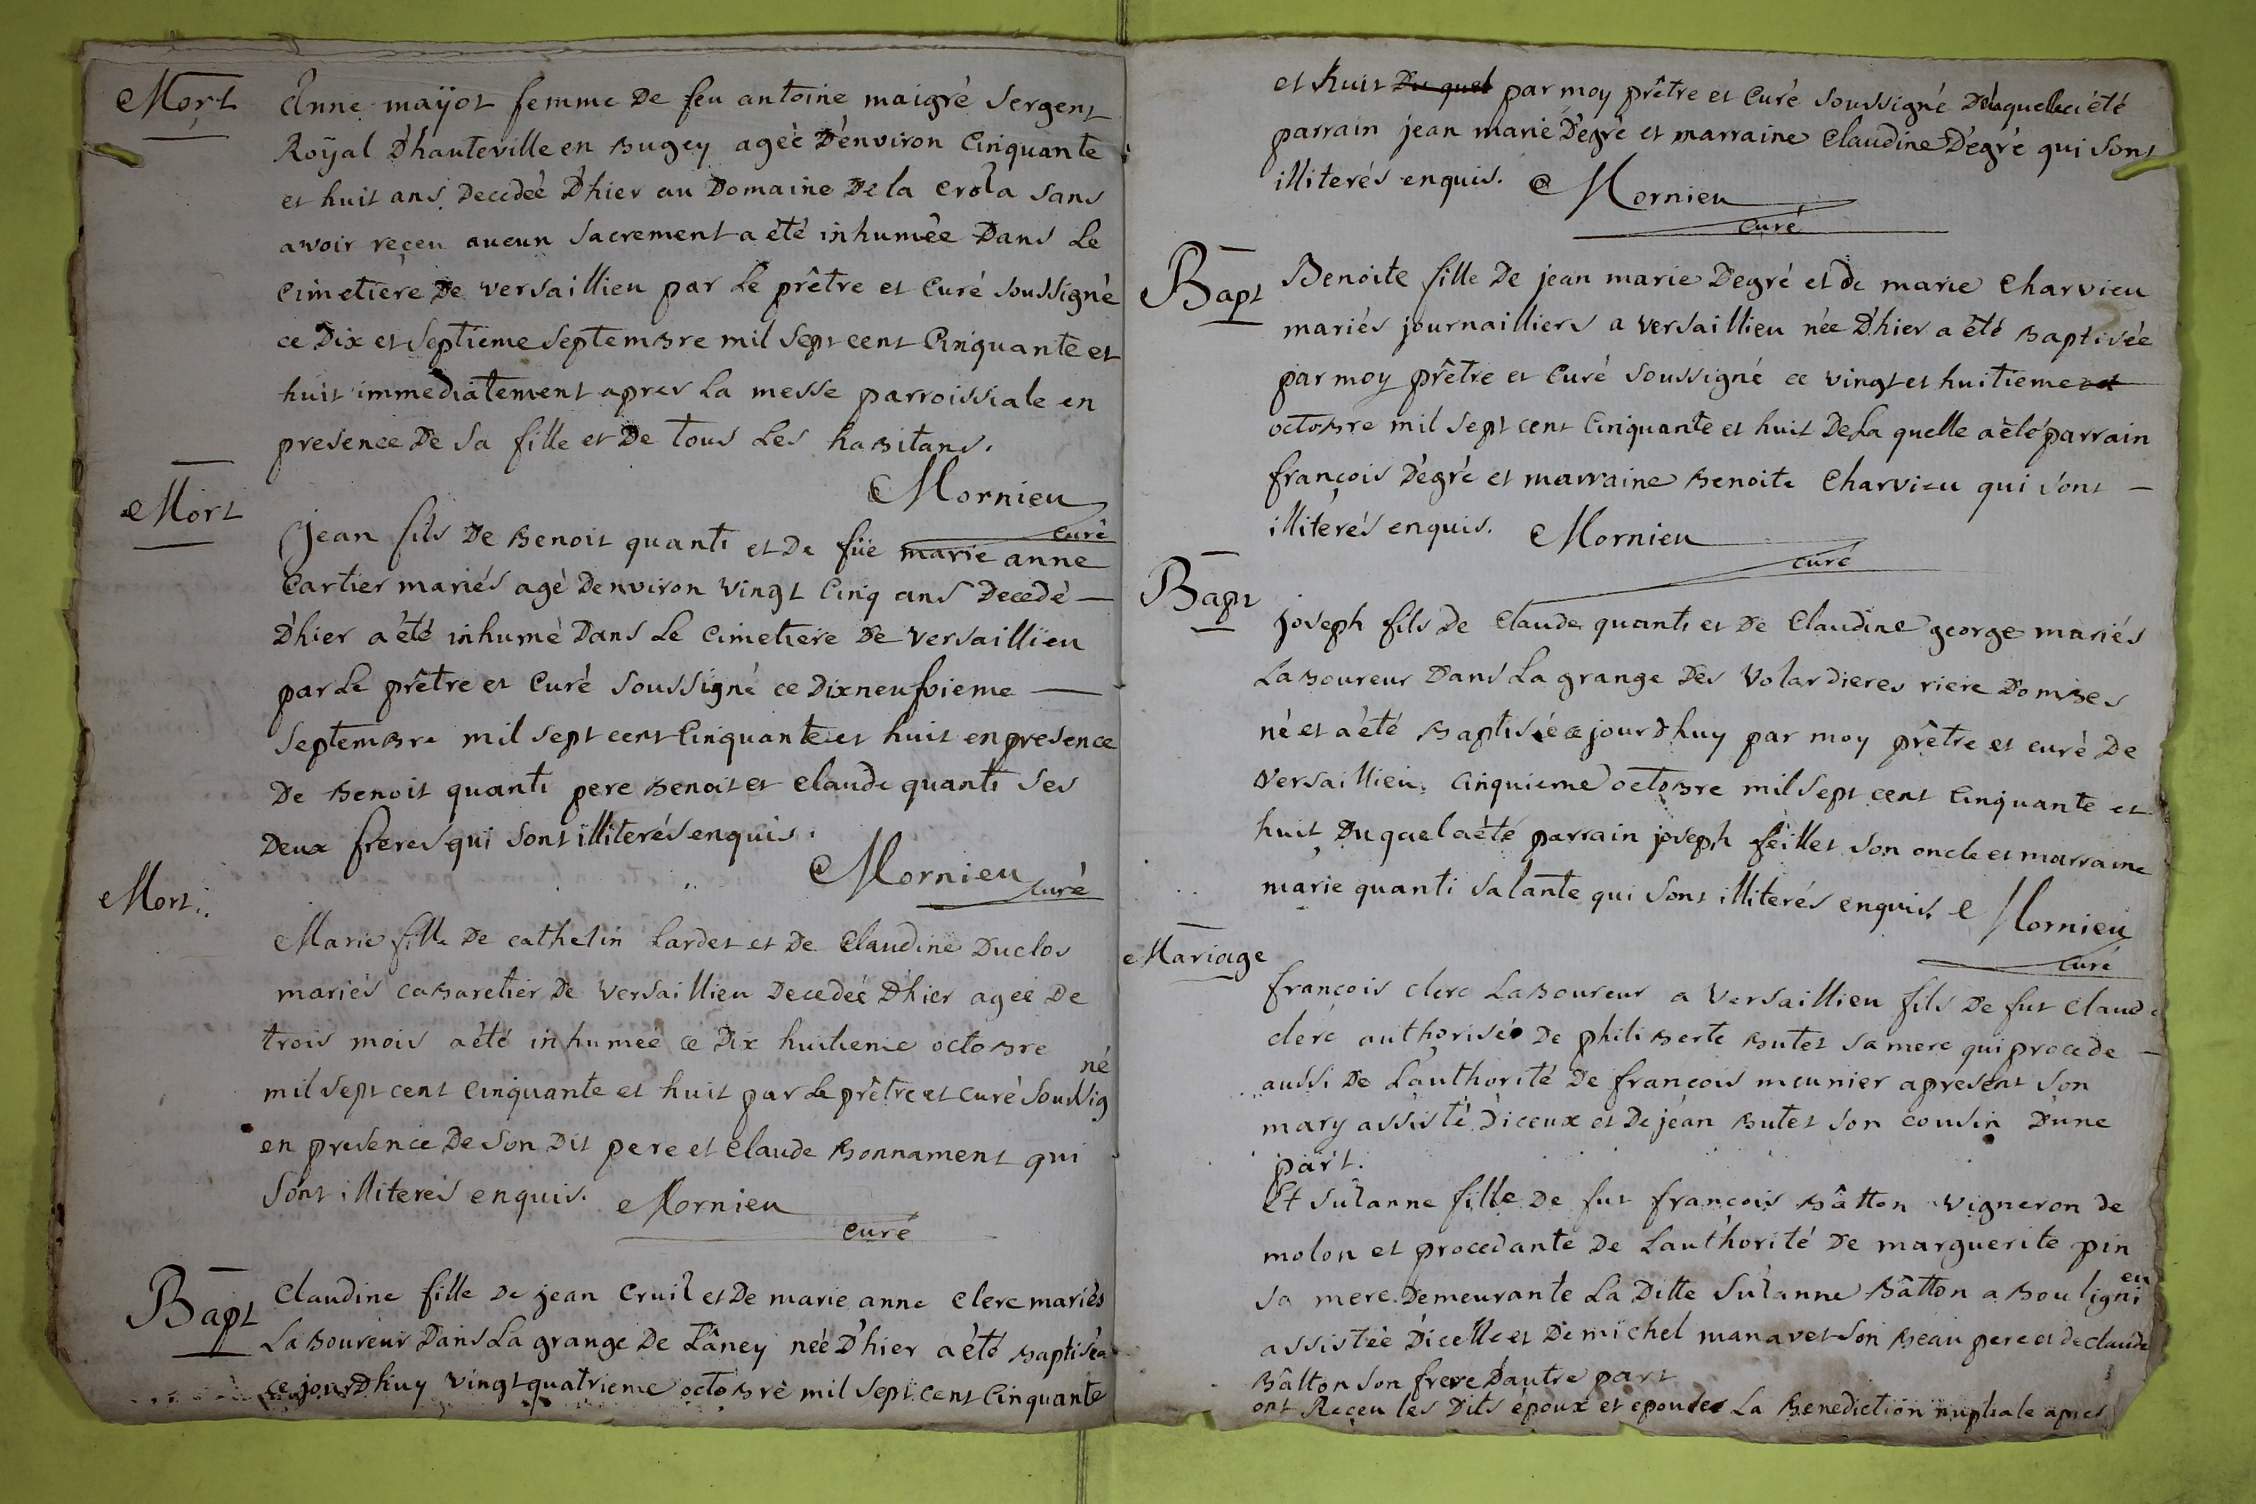 Mort
Anne maÿot femme De feu antoine maigré Sergent
Roÿal D'hauteville en Bugey agée D'environ Cinquante
et huit ans Decedée D'hier au Domaine De la crola sans
avoir reçeu aucun Sacrement a été inhumée Dans Le
Cimetiere De versaillieu par Le prêtre et Curé soussigné
ce Dix et Septieme Septembre mil Sept cent Cinquante et
huit immediatement apres La messe parroissiale en
presence De Sa fille et De tous Les habitans.
Mornieu
curé
Mort
Jean fils De Benoit quanti et De füe marie anne
Cartier mariés agé Denviron vingt Cinq ans Decedé —
D'hier a été inhumé Dans Le Cimetiere De versaillieu
par Le prêtre et Curé Soussigné ce Dixneufvieme —
Septembre mil sept cent Cinquante et huit en presence
De Benoit quanti pere Benoit et Claude quanti Ses
Deux freres qui Sont illiterés enquis.
Mornieu
curé
Mort
Marie fille De cathelin Lardet et De Claudine Duclos
mariés cabaretier De versaillieu Decedée D'hier agée De
trois mois a été inhumée ce Dix huitieme octobre
mil sept cent Cinquante et huit par Le prêtre et Curé Soussig
né
en presence De Son Dit pere et Claude Bonnament qui
Sont illiterés enquis. Mornieu
curé
Bapt
Claudine fille De jean Cruil et De marie anne Clerc mariés
Laboureur Dans La grange De Lâney née D'hier a été Baptisée
ce jourdhuy vingt quatrieme octobre mil Sept cent Cinquante
et huit Du quel par moy prêtre et Curé Soussigné été
parrain jean marie Degré et marraine Claudine Degré qui Sont
illiterés enquis. Mornieu
Curé
Bapt
Benoite fille De jean marie Degré et de marie Charvieu
mariés journailliers a versaillieu née D'hier a été Baptisée
par moy prêtre et Curé Soussigné ce vingt et huitieme
octobre mil sept cent Cinquante et huit De La quelle a été parrain
françois Dégré et marraine Benoite Charvieu qui sont —
illiterés enquis. Mornieu
curé
Bapt
joseph fils De Claude quanti et De Claudine george mariés
Laboureur Dans La grange Des Volardieres riere Dombes
né et a été Baptisé ce jourdhuy par moy prêtre et curé De
versaillieu Cinquieme octobre mil sept cent Cinquante et
huit Duquel a été parrain joseph feillet Son oncle et marraine
marie quanti Sa tante qui Sont illiterés enquis. Mornieu
Curé
Mariage
françois clerc Laboureur a versaillieu fils De fut Claude
clerc authorisé De philiberte Butet Sa mere qui procede —
aussi De Lauthorité De françois meunier apresent Son
mary assisté D'iceux et De jean Butet Son cousin D'une
part.
Et Suzanne fille De fut françois Bâtton vigneron de
molon et procedante De Lauthorité De marguerite pin
Sa mere Demeurante La Ditte Suzanne Bâtton a Bouligni
eu
assistée D'icelle et De michel manavet Son Beau pere et de claude
Bâtton Son frere Dautre part
ont Reçeu les Dits époux et epouses La Benediction nuptiale apres